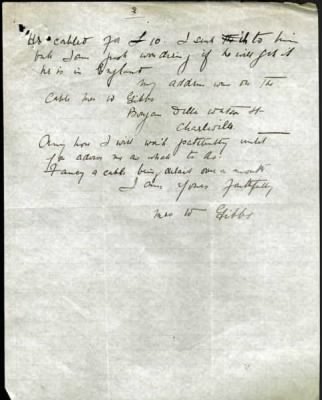 3
He cabled for £10. I sent it to him
but I am just wondering if he will get it
he is in England
my address was on the
Cable Mrs W Gibbs
Dell Watson St
Charleville
Any how I will wait patiently until
you advise me as what to do.
Fancy a cable being delayed over a month
I am yours faithfully
Mrs W Gibbs